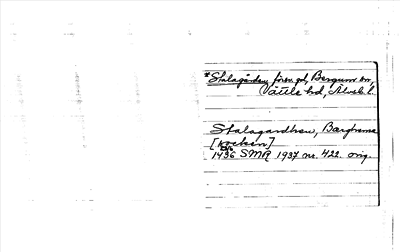 *Stalagården, förr. gd, Bergum sn,
Vättle hd, Älvsb. l.
Stalagardhen, Bergheme
[socken]
1436 SMR 1937 nr. 422. orig.